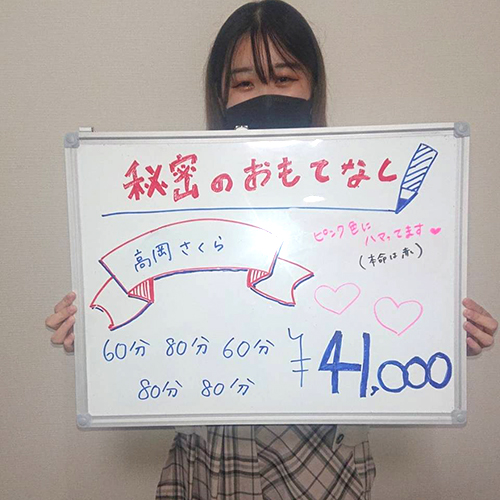 秘密のおもてなし
高岡さくら
ピンク色に
ハマってます♥
(本命は赤)
60分 80分 60分
80分 80分
¥41,000